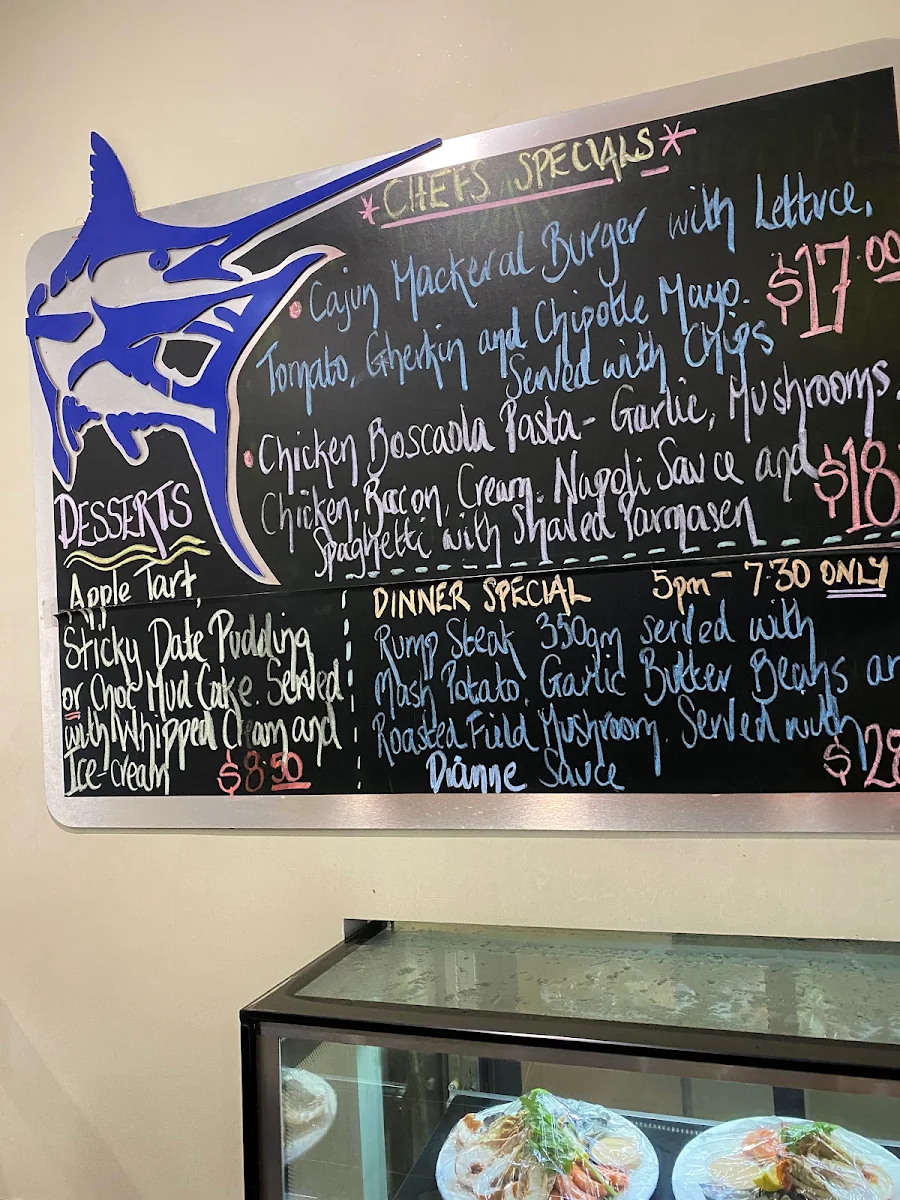 *CHEFS SPECIALS*
• Cajun Mackeral Burger with Lettuce,
Tomato, Gherkin and Chipotle Mayo. $17.00
Served with Chips
• Chicken Boscaola Pasta - Garlic, Mushrooms,
Chicken, Bacon, Cream, Napoli Sauce and $18
Spaghetti with Shaved Parmasen
DESSERTS
Apple Tart,
Sticky Date Pudding
or Choc Mud Cake. Served
with Whipped Cream and
Ice-cream $8.50
DINNER SPECIAL 5pm - 7.30 ONLY
Rump Steak 350gm served with
Mash Potato, Garlic Butter Beans
Roasted Field Mushroom. Served with
Dianne Sauce $28